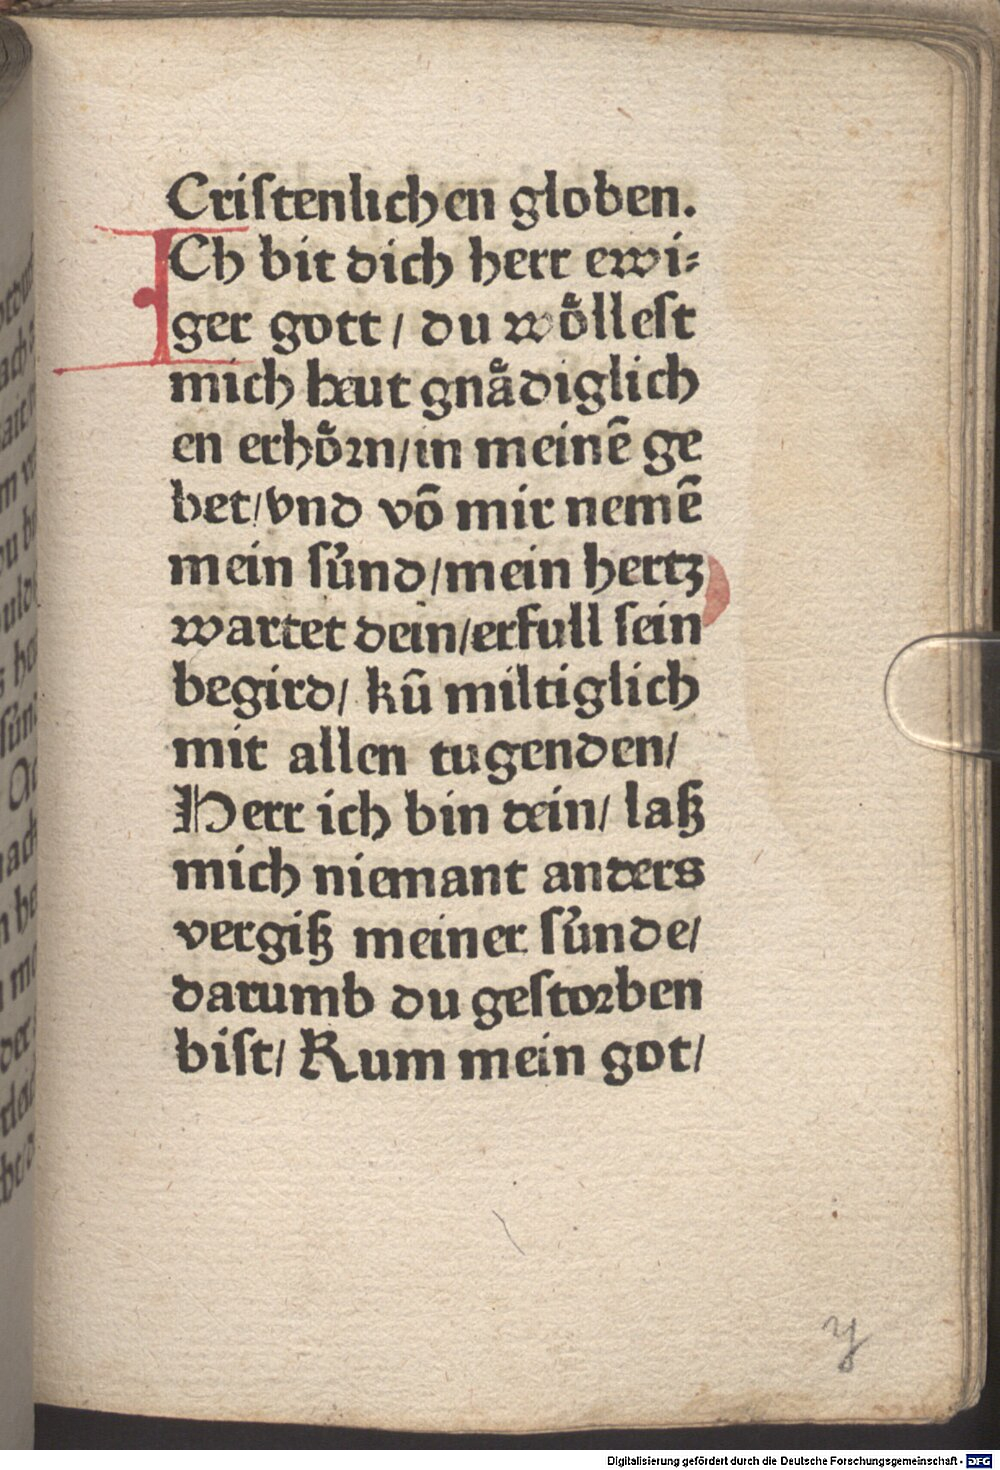 Criſtenlichen globen.
ICh bit dich herr ewi⸗
ger gott/ du woͤlleſt
mich heut gnaͤdiglich
en erhoͤꝛn/in meinē ge
bet/vnd vō mir nemē
mein ſuͤnd/mein hertz
wartet dein/erfull ſein
begird/ kū miltiglich
mit allen tugenden/
Herr ich bin dein/ laß
mich niemant anders
vergiß meiner ſuͤnde/
darumb du geſtoꝛben
biſt/ Kum mein got/
y
Digitalisierung gefördert durch die Deutsche Forschungsgemeinschaft - DFG